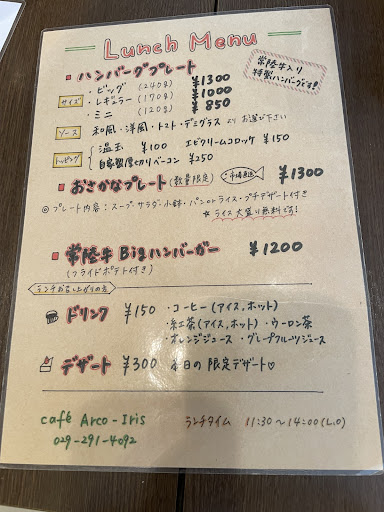 Lunch Menu
常陸牛入り
特製ハンバーグです!
■ ハンバーグプレート
サイズ
・ビッグ (240g) ¥1300
・レギュラー (170g) ¥1000
・ミニ (120g) ¥850
ソース 和風・洋風・トマト・デミグラス よりお選び下さい
トッピング
温玉 ¥100 エビクリームコロッケ ¥150
自家製厚切りベーコン ¥250
■ おさかなプレート (数量限定) 市場直送 ¥1300
◎ プレート内容:スープ・サラダ・小鉢・パンorライス・プチデザート付き
★ライス大盛り無料です!
■ 常陸牛Bigハンバーガー ¥1200
(フライドポテト付き)
ランチお召し上がりの方
ドリンク ¥150 ・コーヒー(アイス,ホット)
・紅茶(アイス,ホット) ・ウーロン茶
・オレンジジュース ・グレープフルーツジュース
デザート ¥300 本日の限定デザート♡
café Arco-Iris
029-291-4092
ランチタイム 11:30~14:00(L.O)